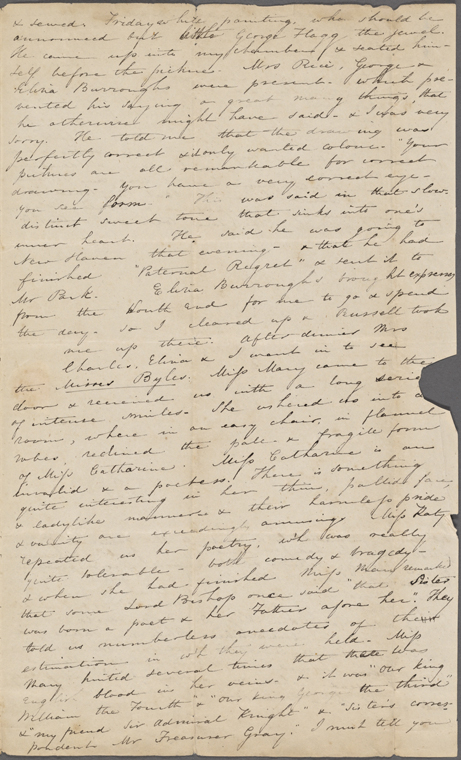 & sewed. Friday white painting, who should be
announced but George Flagg the jewel.
He came up into my chamber & seated him-
self before the picture. Mrs Rice, George &
Elvira Burroughs were present. which pre-
vented his saying a great many things, that
he otherwise might have said. & I was very
sorry. He told me that the drawing was
perfectly correct & only wanted colour. "Your
pictures are all remarkable for correct
drawing. You have a very correct eye-
you see Form." This was said in that slow
distinct sweet tone that sinks into one's
inner heart. He said he was going to
New Haven that evening- & that he had
finished "Paternal Regret" & sent it to
Mr Park. Elvira Burroughs brought express
from the South End for me to go & spend
the day- so I cleared up & Russell took
me up there. After dinner Mrs
Charles, Elvira & I went in to see
the Misses Byles. Miss Mary came to the
door & received us with a long series
of intense smiles. She ushered us into a
room, where in an easy chair, in flannel
robes, reclined the pale & fragile form
of Miss Catharine. Miss Catharine is an
invalid & a poetess. There is something
quite interesting in her thin, pallid face,
& ladylike manners & their harmless pride
& vanity are exceedingly amusing. Miss Katy
repeated us her poetry, wh was really
quite tolerable- both comedy & tragedy-
& when she had finished Miss Mary remarked
that some Lord Bishop once said "that Sister
was born a poet & her Father afore her." They
told us numberless anecdotes of the
estimation in wh they were held. Miss
Mary hinted several times that there was
English blood in her veins- & it was "Our King
William the Fourth & "our King George the third"
& "my friend Sir Admiral Knight" & "Sisters corres-
pondent Mr Treasurer Gray." I must tell you